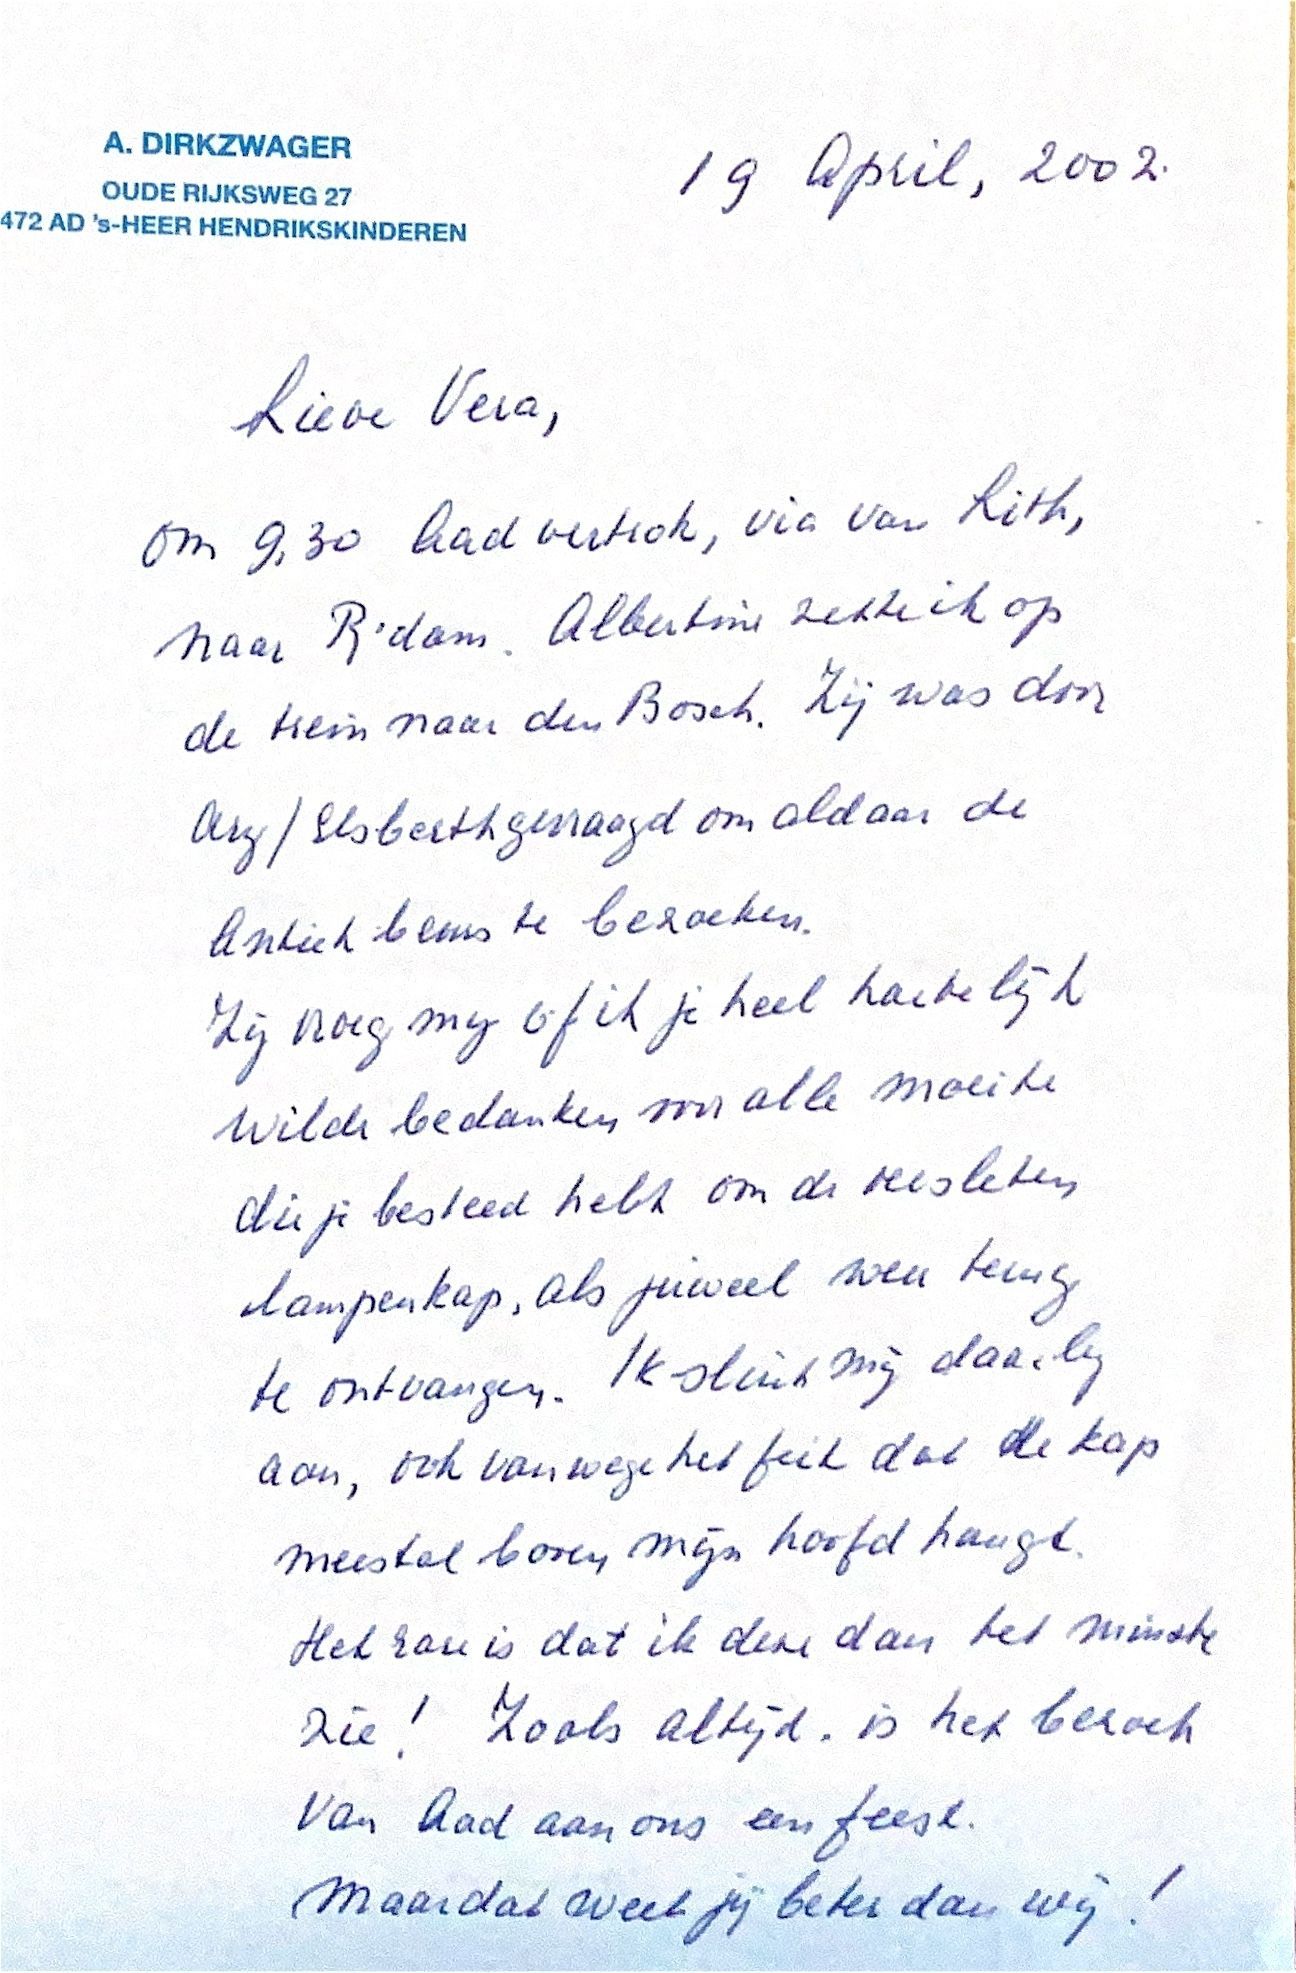 A. DIRKZWAGER
OUDE RIJKSWEG 27
472 AD 's-HEER HENDRIKSKINDEREN
19 April, 2002.
Lieve Vera,
om 9,30 Aad vertrok, via van Lith,
naar R'dam. Albertine zette ik op
de trein naar den Bosch. Zij was door
Ary/Elsberth gevraagd om aldaar de
Antiek beurs te bezoeken.
Zij vroeg mij of ik je heel hartelijk
wilde bedanken voor alle moeite
die je besteed hebt om de versleten
lampenkap, als juweel weer terug
te ontvangen. Ik sluit mij daar bij
aan, ook vanwege het feit dat de kap
meestal boven mijn hoofd hangt.
Het rare is dat ik deze dan het minste
zie! Zoals altijd. is het bezoek
van Aad aan ons een feest.
Maar dat weet jij beter dan wij!